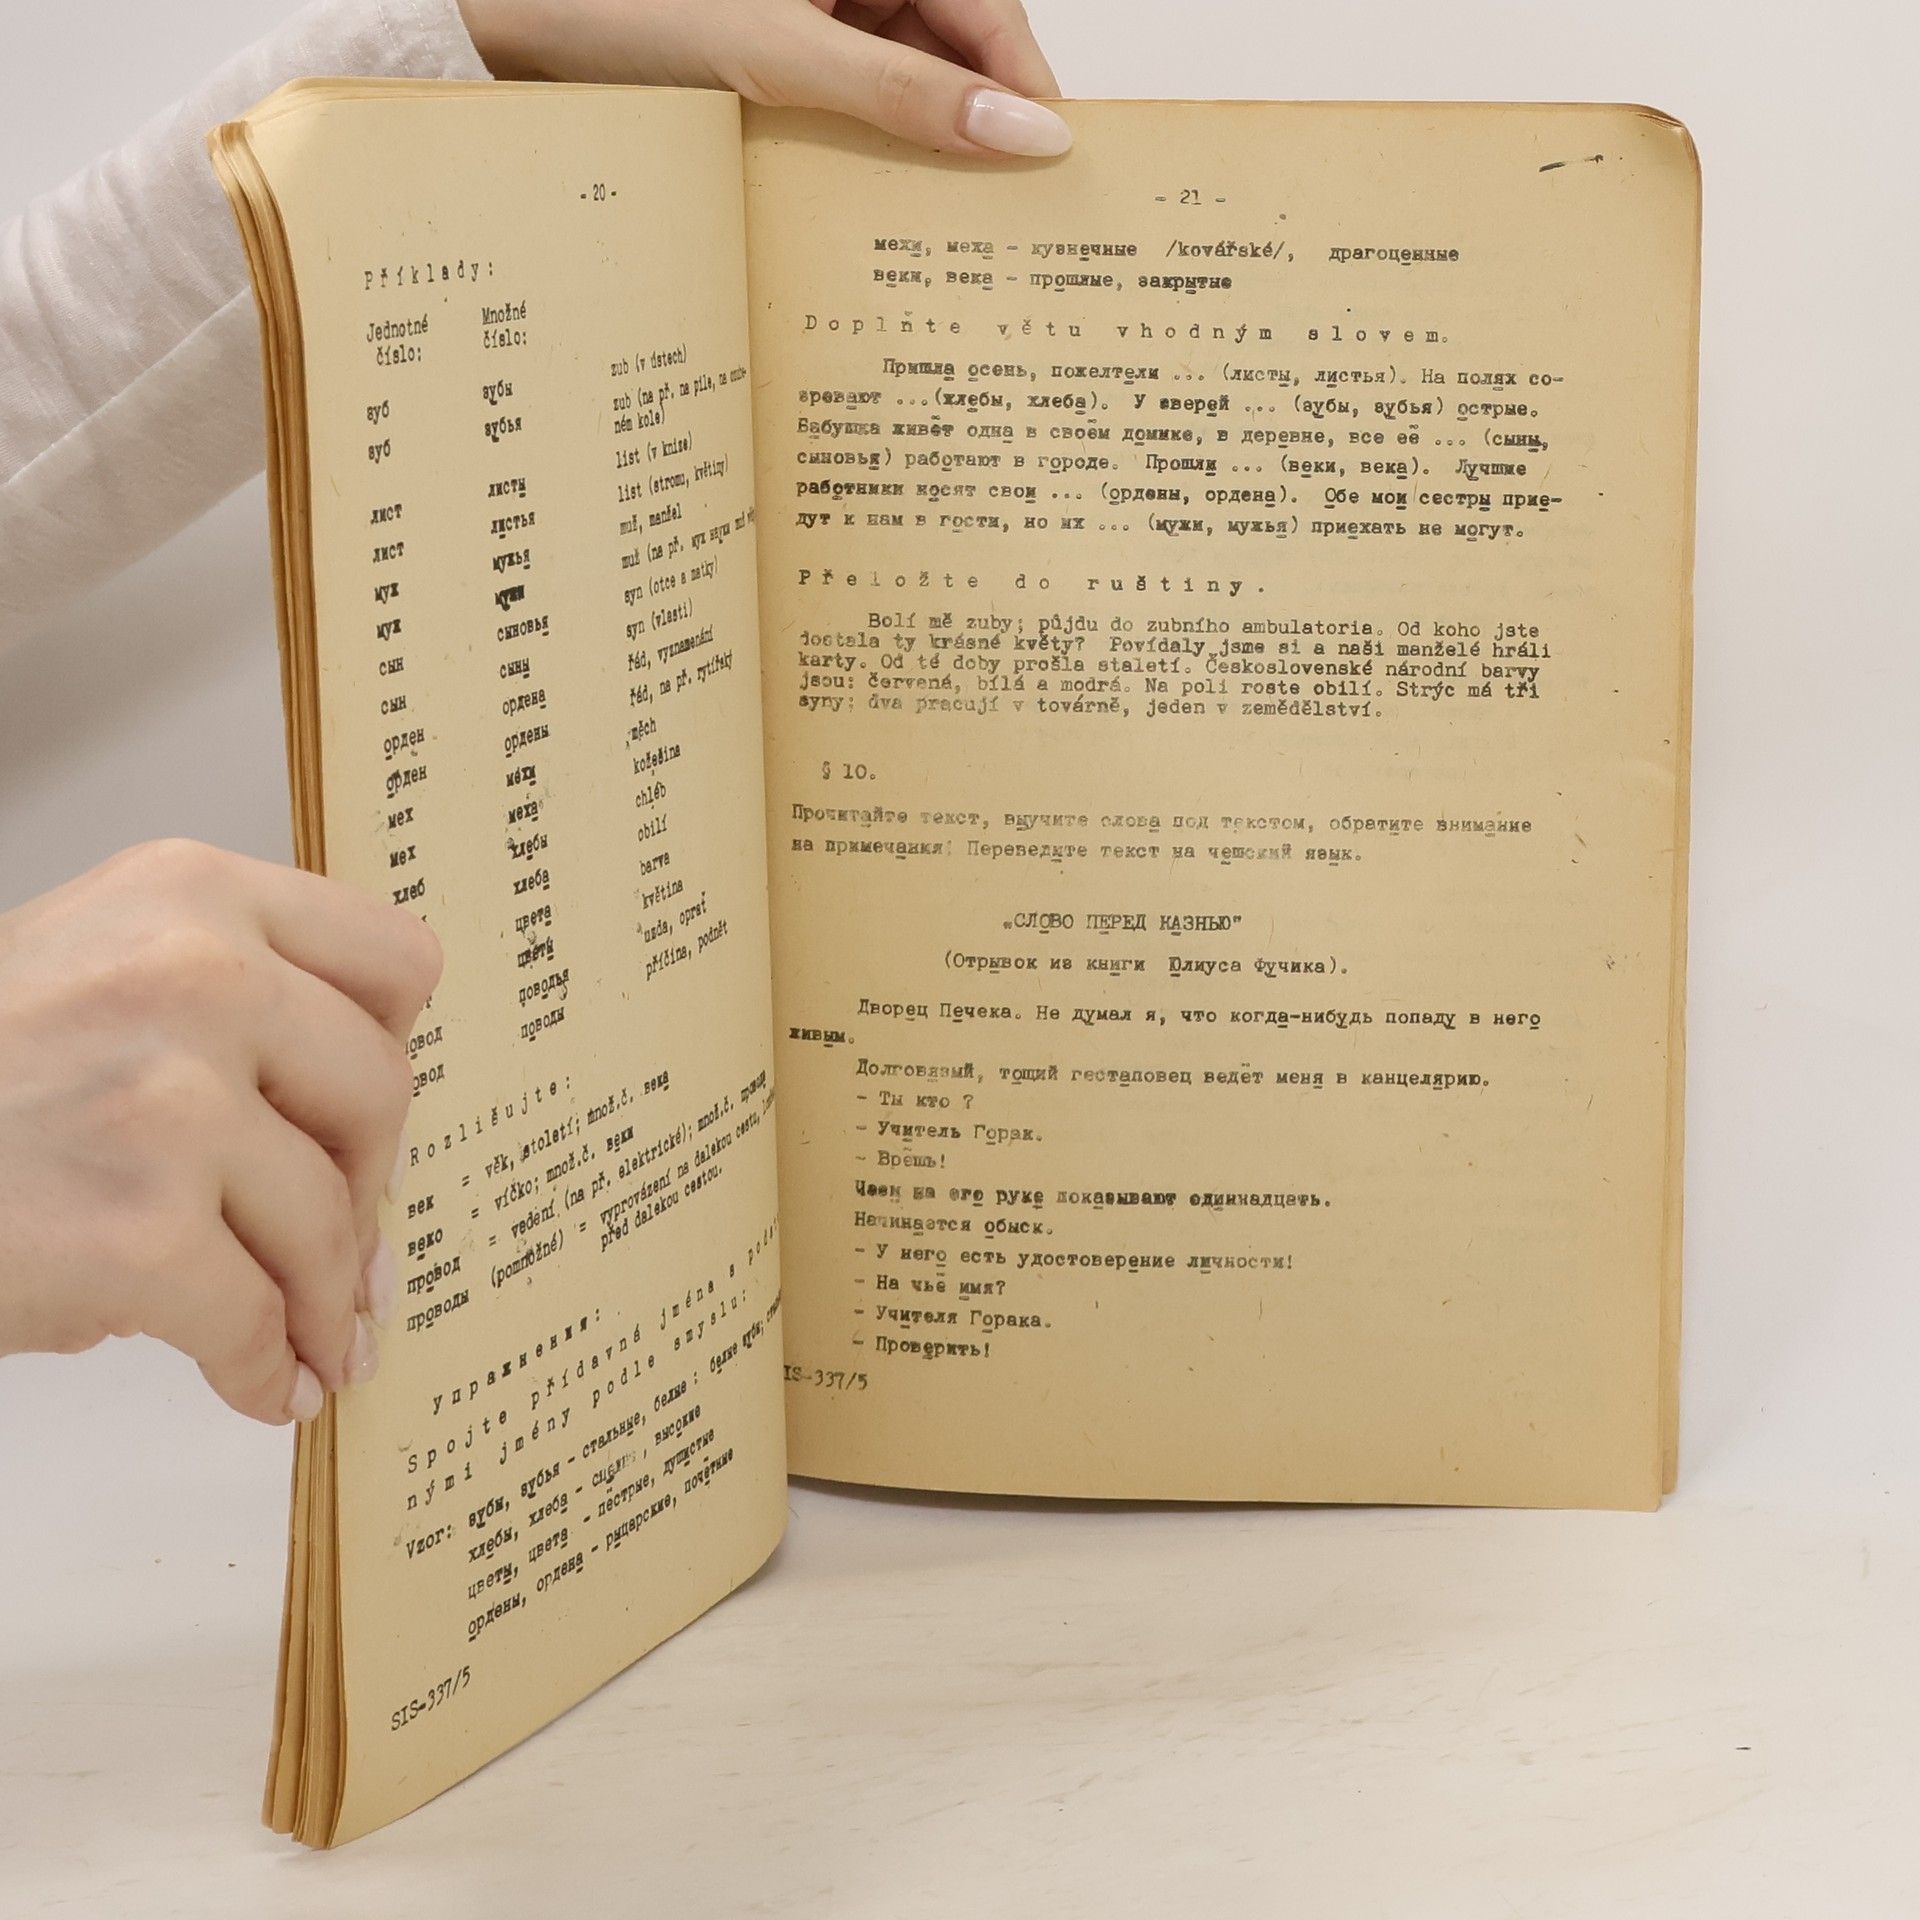 - 20 -
Příklady:
Jednotné Množné
číslo: číslo:
зуб зубы zub (v ústech)
зуб зубья zub (na př. na pile, na ozube-
ném kole)
лист листы list (v knize)
лист листья list (stromu, květiny)
муж мужья muž, manžel
муж мужи muž (na př. муж науки muž
сын сыновья syn (otce a matky)
сын сыны syn (vlasti)
орден ордена řád, vyznamenání
орден ордены řád, na př. rytířský
мех мехи měch
мех меха kožešina
хлеб хлебы chléb
хлеба obilí
цвета barva
цветы květina
повод поводья uzda, oprať
повод поводы příčina, podnět
Rozlišujte:
век = věk, století; množ.č. века
веко = víčko; množ.č. веки
провод = vedení (na př. elektrické); množ.č. провода
проводы (pomnožné) = vyprovázení na dalekou cestu,
před dalekou cestou.
упражнения:
Spojte přídavná jména s pods-
nými jmény podle smyslu:
Vzor: зубы, зубья - стальные, белые: белые зубы;
хлебы, хлеба - , высокие
цветы, цвета - пёстрые, душистые
ордены, ордена - рыцарские, почётные
SIS-337/5
- 21 -
мехи, меха - кузнечные /kovářské/, драгоценные
веки, века - прошлые, закрытые
Doplňte větu vhodným slovem.
Пришла осень, пожелтели ... (листы, листья). На полях со-
зревают ...(хлебы, хлеба). У зверей ... (зубы, зубья) острые.
Бабушка живёт одна в своём домике, в деревне, все её ... (сыны,
сыновья) работают в городе. Прошли ... (веки, века). Лучшие
работники носят свои ... (ордены, ордена). Обе мои сестры прие-
дут к нам в гости, но их ... (мужи, мужья) приехать не могут.
Přeložte do ruštiny.
Bolí mě zuby; půjdu do zubního ambulatoria. Od koho jste
dostala ty krásné květy? Povídaly jsme si a naši manželé hráli
karty. Od té doby prošla staletí. Československé národní barvy
jsou: červená, bílá a modrá. Na poli roste obilí. Strýc má tři
syny; dva pracují v továrně, jeden v zemědělství.
§ 10.
Прочитайте текст, выучите слова под текстом, обратите внимание
на примечания! Переведите текст на чешский язык.
„СЛОВО ПЕРЕД КАЗНЬЮ"
(Отрывок из книги Юлиуса Фучика).
Дворец Печека. Не думал я, что когда-нибудь попаду в него
живым.
Долговязый, тощий гестаповец ведёт меня в канцелярию.
- Ты кто ?
- Учитель Горак.
- Врёшь!
Часы на его руке показывают одиннадцать.
Начинается обыск.
- У него есть удостоверение личности!
- На чьё имя?
- Учителя Горака.
- Проверить!
IS-337/5